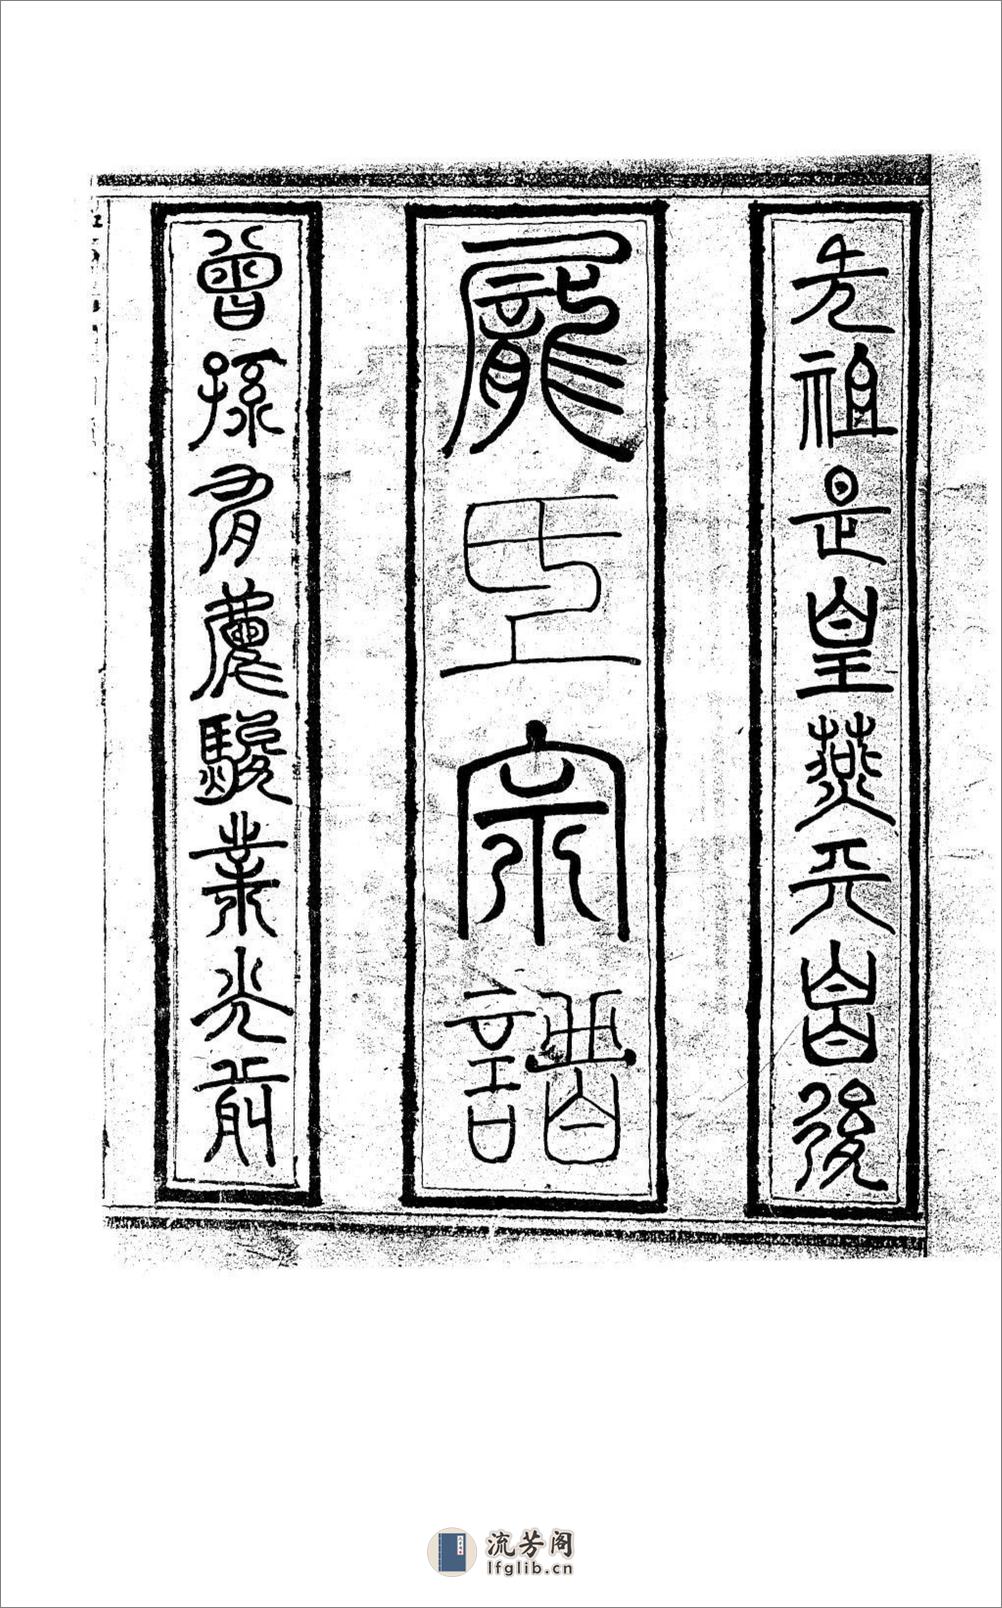 先祖是皇燕天昌後
龐氏宗譜
曾孫有慶駿業光前
流芳阁
lfglib.cn